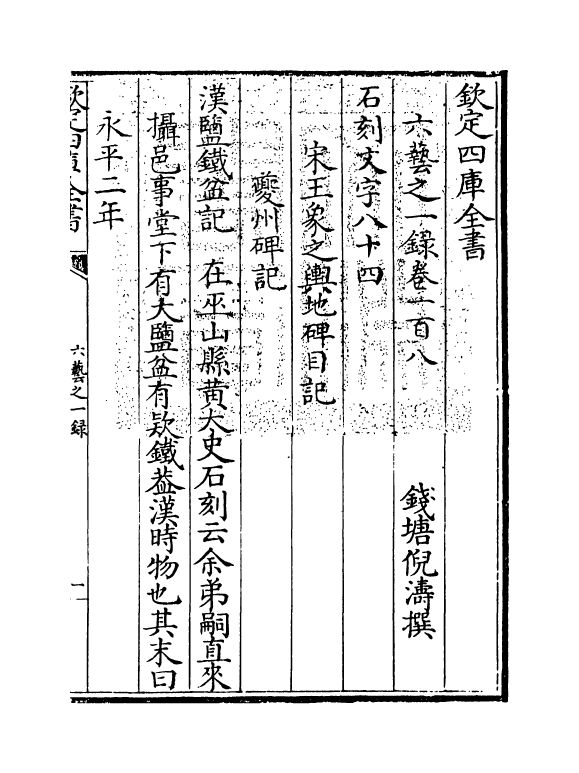 欽定四庫全書
六藝之一録卷一百八
錢塘倪濤撰
石刻文字八十四
宋王象之輿地碑目記
夔州碑記
漢鹽鐵盆記 在巫山縣黄太史石刻云余弟嗣直來
攝邑事堂下有大鹽盆有欵鐵葢漢時物也其末曰
永平二年
欽定四庫全書
六藝之一録
一